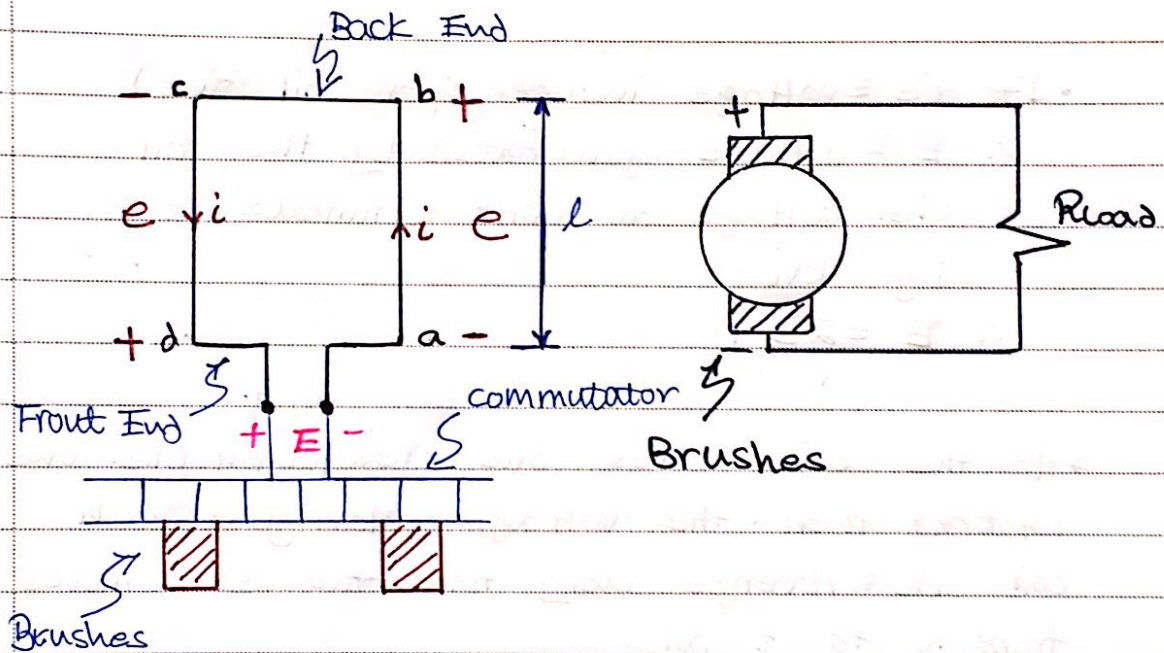 Back End
- c b +
+
e i i e l
RLoad
+ d a -
-
Front End
commutator
+ E -
Brushes
Brushes